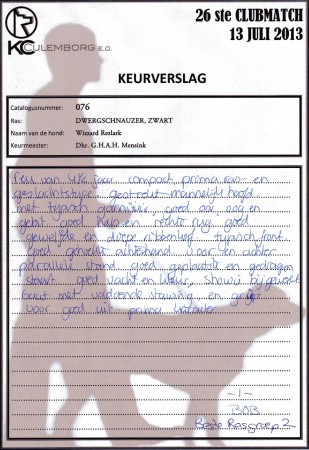 26 ste CLUBMATCH
13 JULI 2013
KC CULEMBORG E.O.
KEURVERSLAG
Catalogusnummer: 076
Ras: DWERGSCHNAUZER, ZWART
Naam van de hond: Wizzard Rezlark
Keurmeester: Dhr. G.H.A.H. Mensink
Reu van 4½ jaar, compact, prima ras- en
geslachtstype, gestrekt mannelijk hoofd
met typisch garnituur, goed oor, oog en
gebit, goed hals en rechte rug, goed
gewelfde en diepe ribbenkorf, typisch front,
goed gehoekt achterhand, voor en achter
parallelle stand, goed geplaatste en gedragen
staart, goed vacht en kleur, showt bijzonder
gaat met voldoende stuwing en grijpt
voor goed uit, prima karakter
-1-
BOB
Beste Rasgroep 2